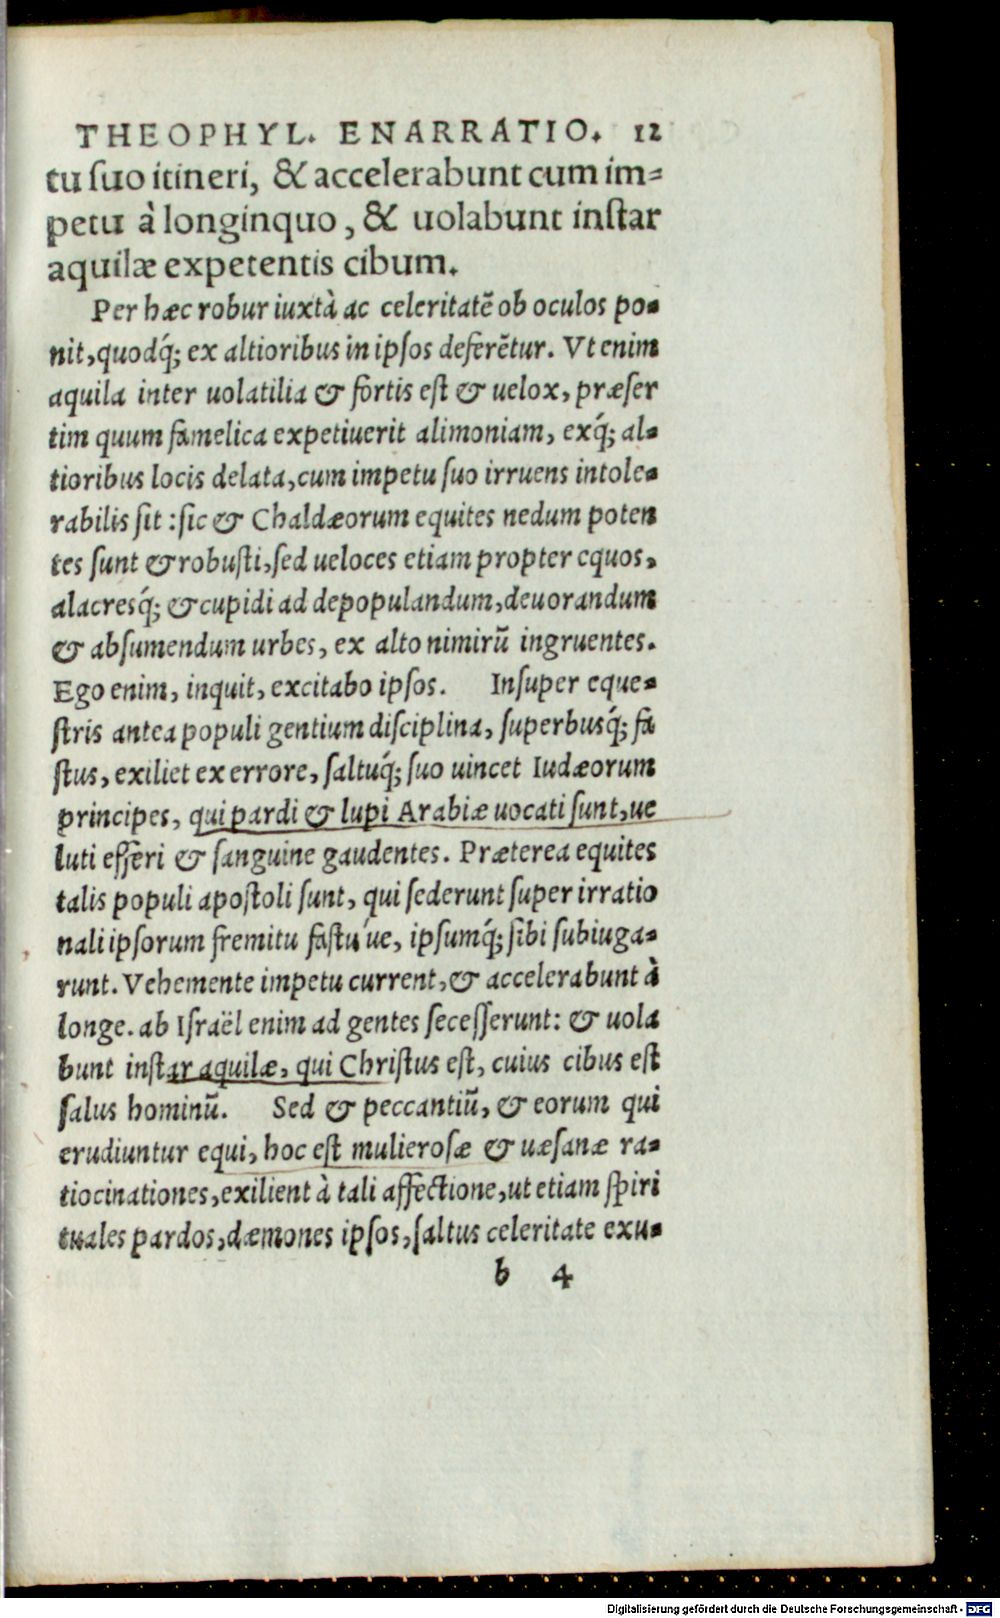 THEOPHYL. ENARRATIO. 12
tu suo itineri, & accelerabunt cum im=
petu à longinquo, & uolabunt instar
aquilæ expetentis cibum.
Per hæc robur iuxtà ac celeritatē ob oculos po-
nit, quodq́; ex altioribus in ipsos deferētur. Vt enim
aquila inter uolatilia & fortis est & uelox, præser
tim quum famelica expetiuerit alimoniam, exq́; al-
tioribus locis delata, cum impetu suo irruens intole-
rabilis sit : sic & Chaldæorum equites nedum poten
tes sunt & robusti, sed ueloces etiam propter equos,
alacresq́; & cupidi ad depopulandum, deuorandum
& absumendum urbes, ex alto nimirū ingruentes.
Ego enim, inquit, excitabo ipsos. Insuper eque-
stris antea populi gentium disciplina, superbusq́; fa
stus, exiliet ex errore, saltuq́; suo uincet Iudæorum
principes, qui pardi & lupi Arabiæ uocati sunt, ue
luti efferi & sanguine gaudentes. Præterea equites
talis populi apostoli sunt, qui sederunt super irratio
nali ipsorum fremitu fastu´ue, ipsumq́; sibi subiuga-
runt. Vehemente impetu current, & accelerabunt à
longe. ab Israël enim ad gentes secesserunt: & uola
bunt instar aquilæ, qui Christus est, cuius cibus est
salus hominū. Sed & peccantiū, & eorum qui
erudiuntur equi, hoc est mulierosæ & uæsanæ ra-
tiocinationes, exilient à tali affectione, ut etiam spiri
tuales pardos, dæmones ipsos, saltus celeritate exu-
b 4
Digitalisierung gefördert durch die Deutsche Forschungsgemeinschaft - DFG